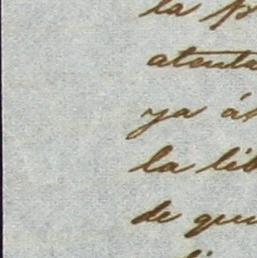 la p
atenta
ya ás
la lib
de que